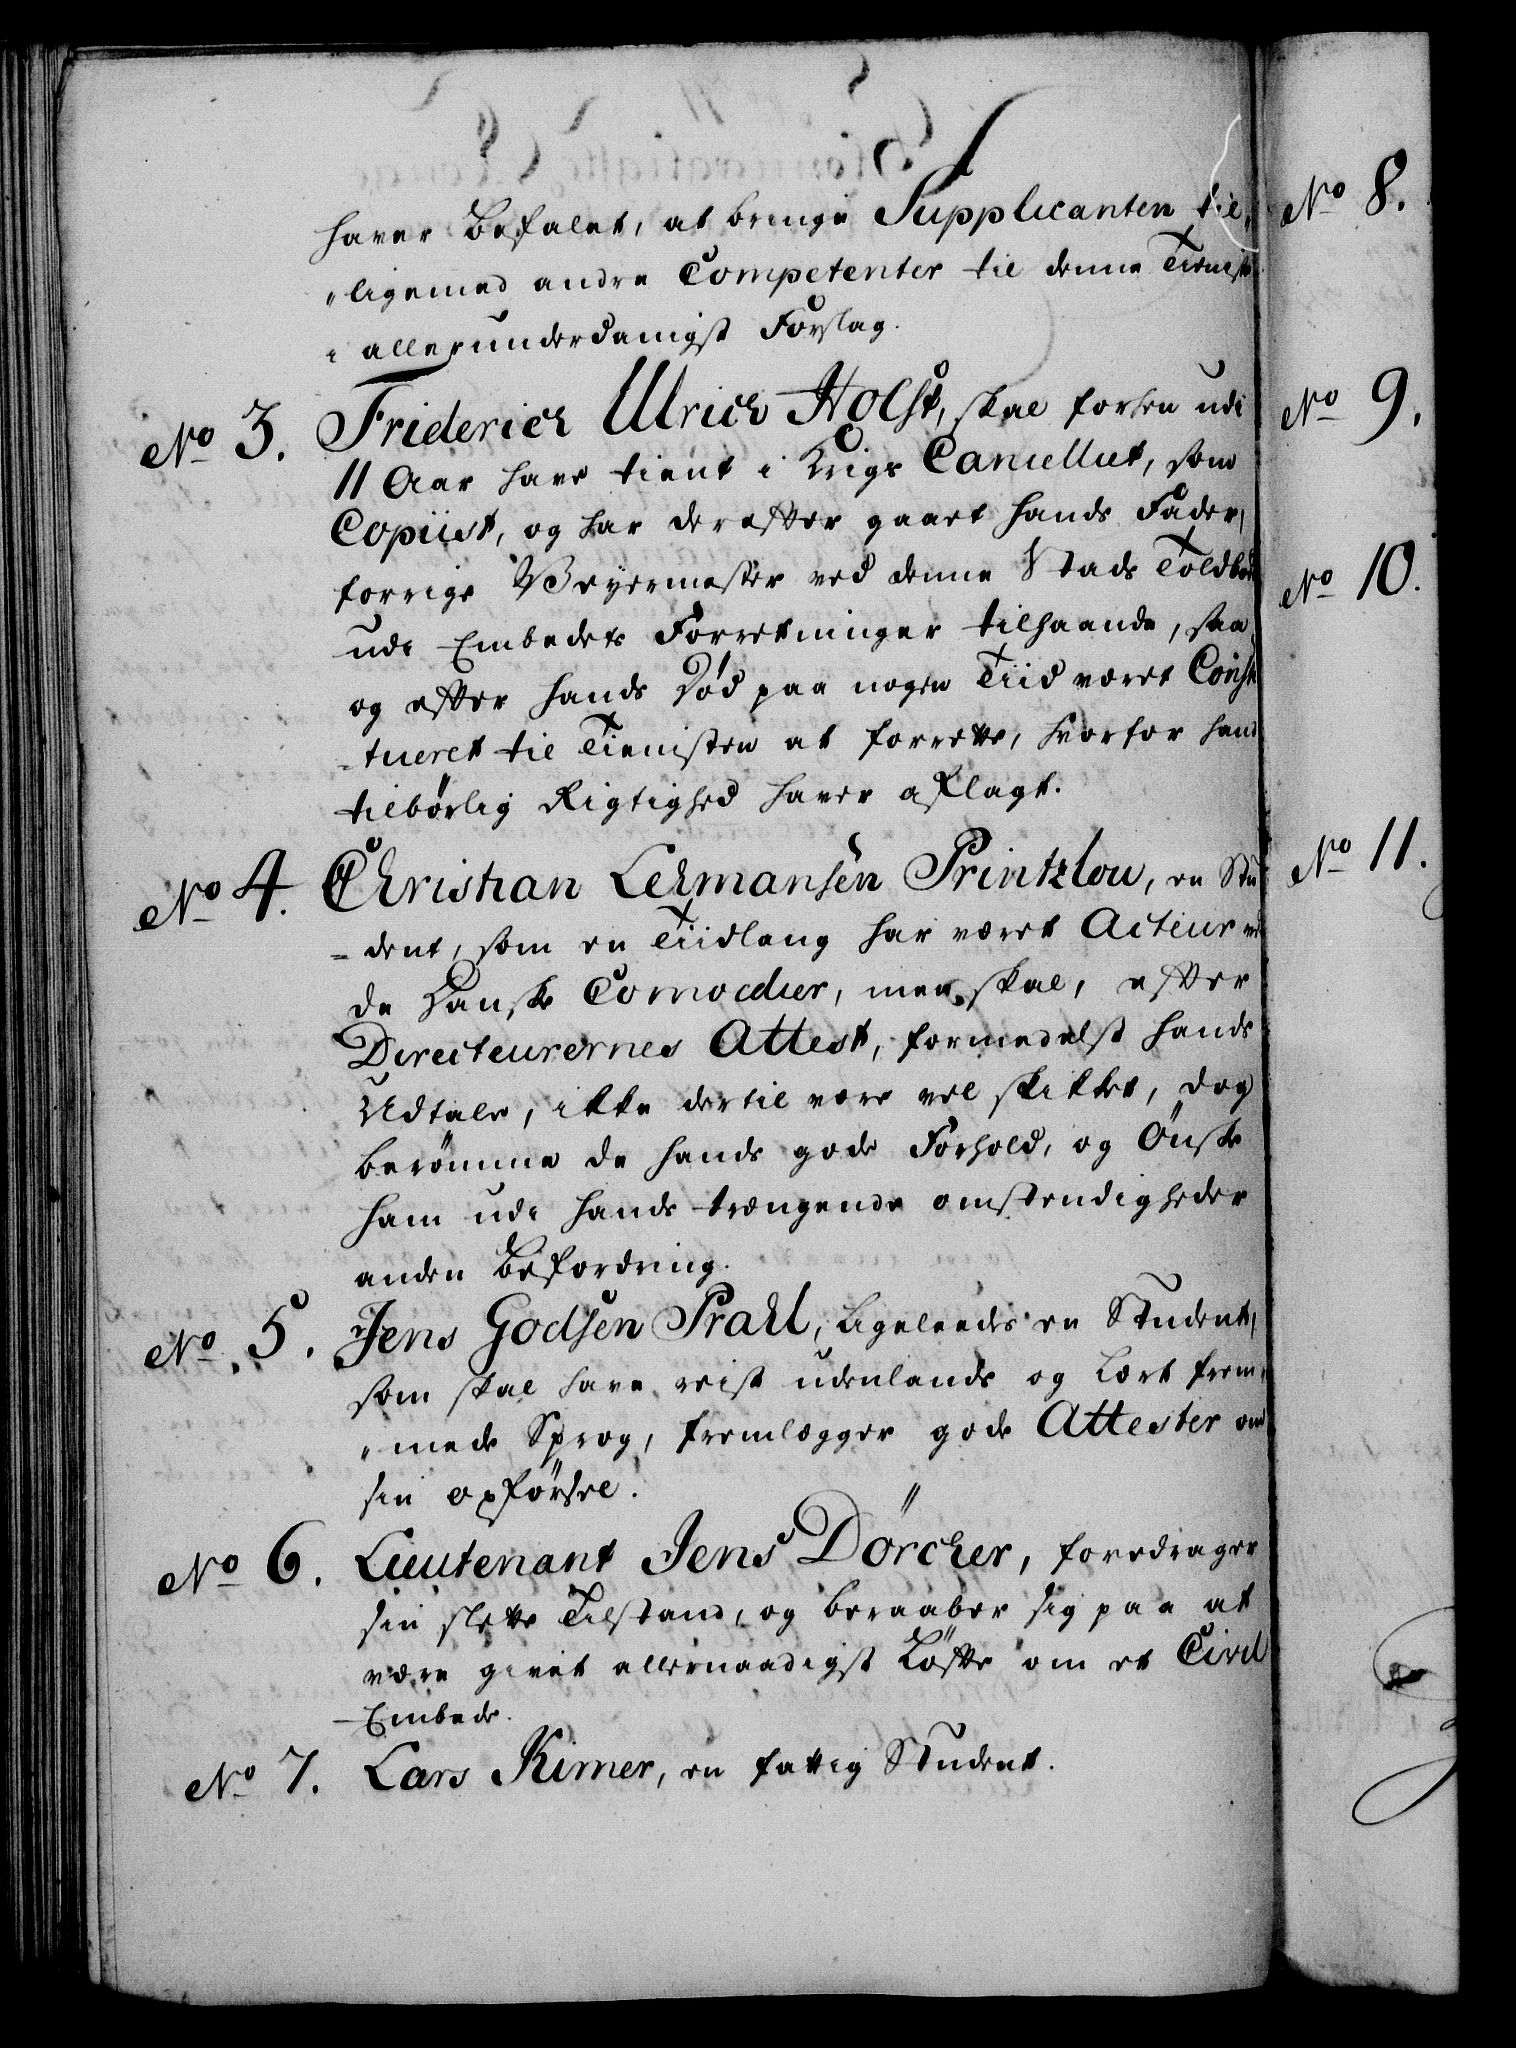 haver befalet, at bringe Supplicanten til„
„ligemed andre Competenter til denne Tieniste
i allerunderdanigst Forslag.
No 3. Friderich Ulrich Holst, skal forhen udi
11 Aar have tient i Krigs Cancelliet, som
Copiist, og har derefter gaaet hands Fader,
forrige Veyermester ved denne Stads Toldbod
udi Embedets Forretninger tilhaande, saa
og efter hands Død paa nogen Tiid været Consti
-tueret til Tienisten at forrette, hvorfor hand
tilbørlig Rigtighed haver aflagt.
No 4. Christian Lehmansen Printzlou, en Stu
=dent, som en Tiidlang har været Acteur ved
de Danske Comoedier, men skal, efter
Directeurernes Attest, formedelst hands
Udtale, ikke dertil være vel skikket, dog
berømme de hands gode Forhold, og Ønske
ham udi hands trængende omstendigheder
anden Befordring.
No. 5. Jens Godsen Prahl, ligeleedes en Student,
som skal have reist udenlands og lært frem„
„mede Sprog, fremlægger gode Attester om
sin opførsel.
No 6. Lieutenant Jens Dörcher, foredrager
sin slette Tilstand, og beraaber sig paa at
være givet allernaadigst Løfte om et Civil
Embede.
No 7. Lars Kimer, en fattig Student.
No 8.
No 9.
No 10.
No 11.